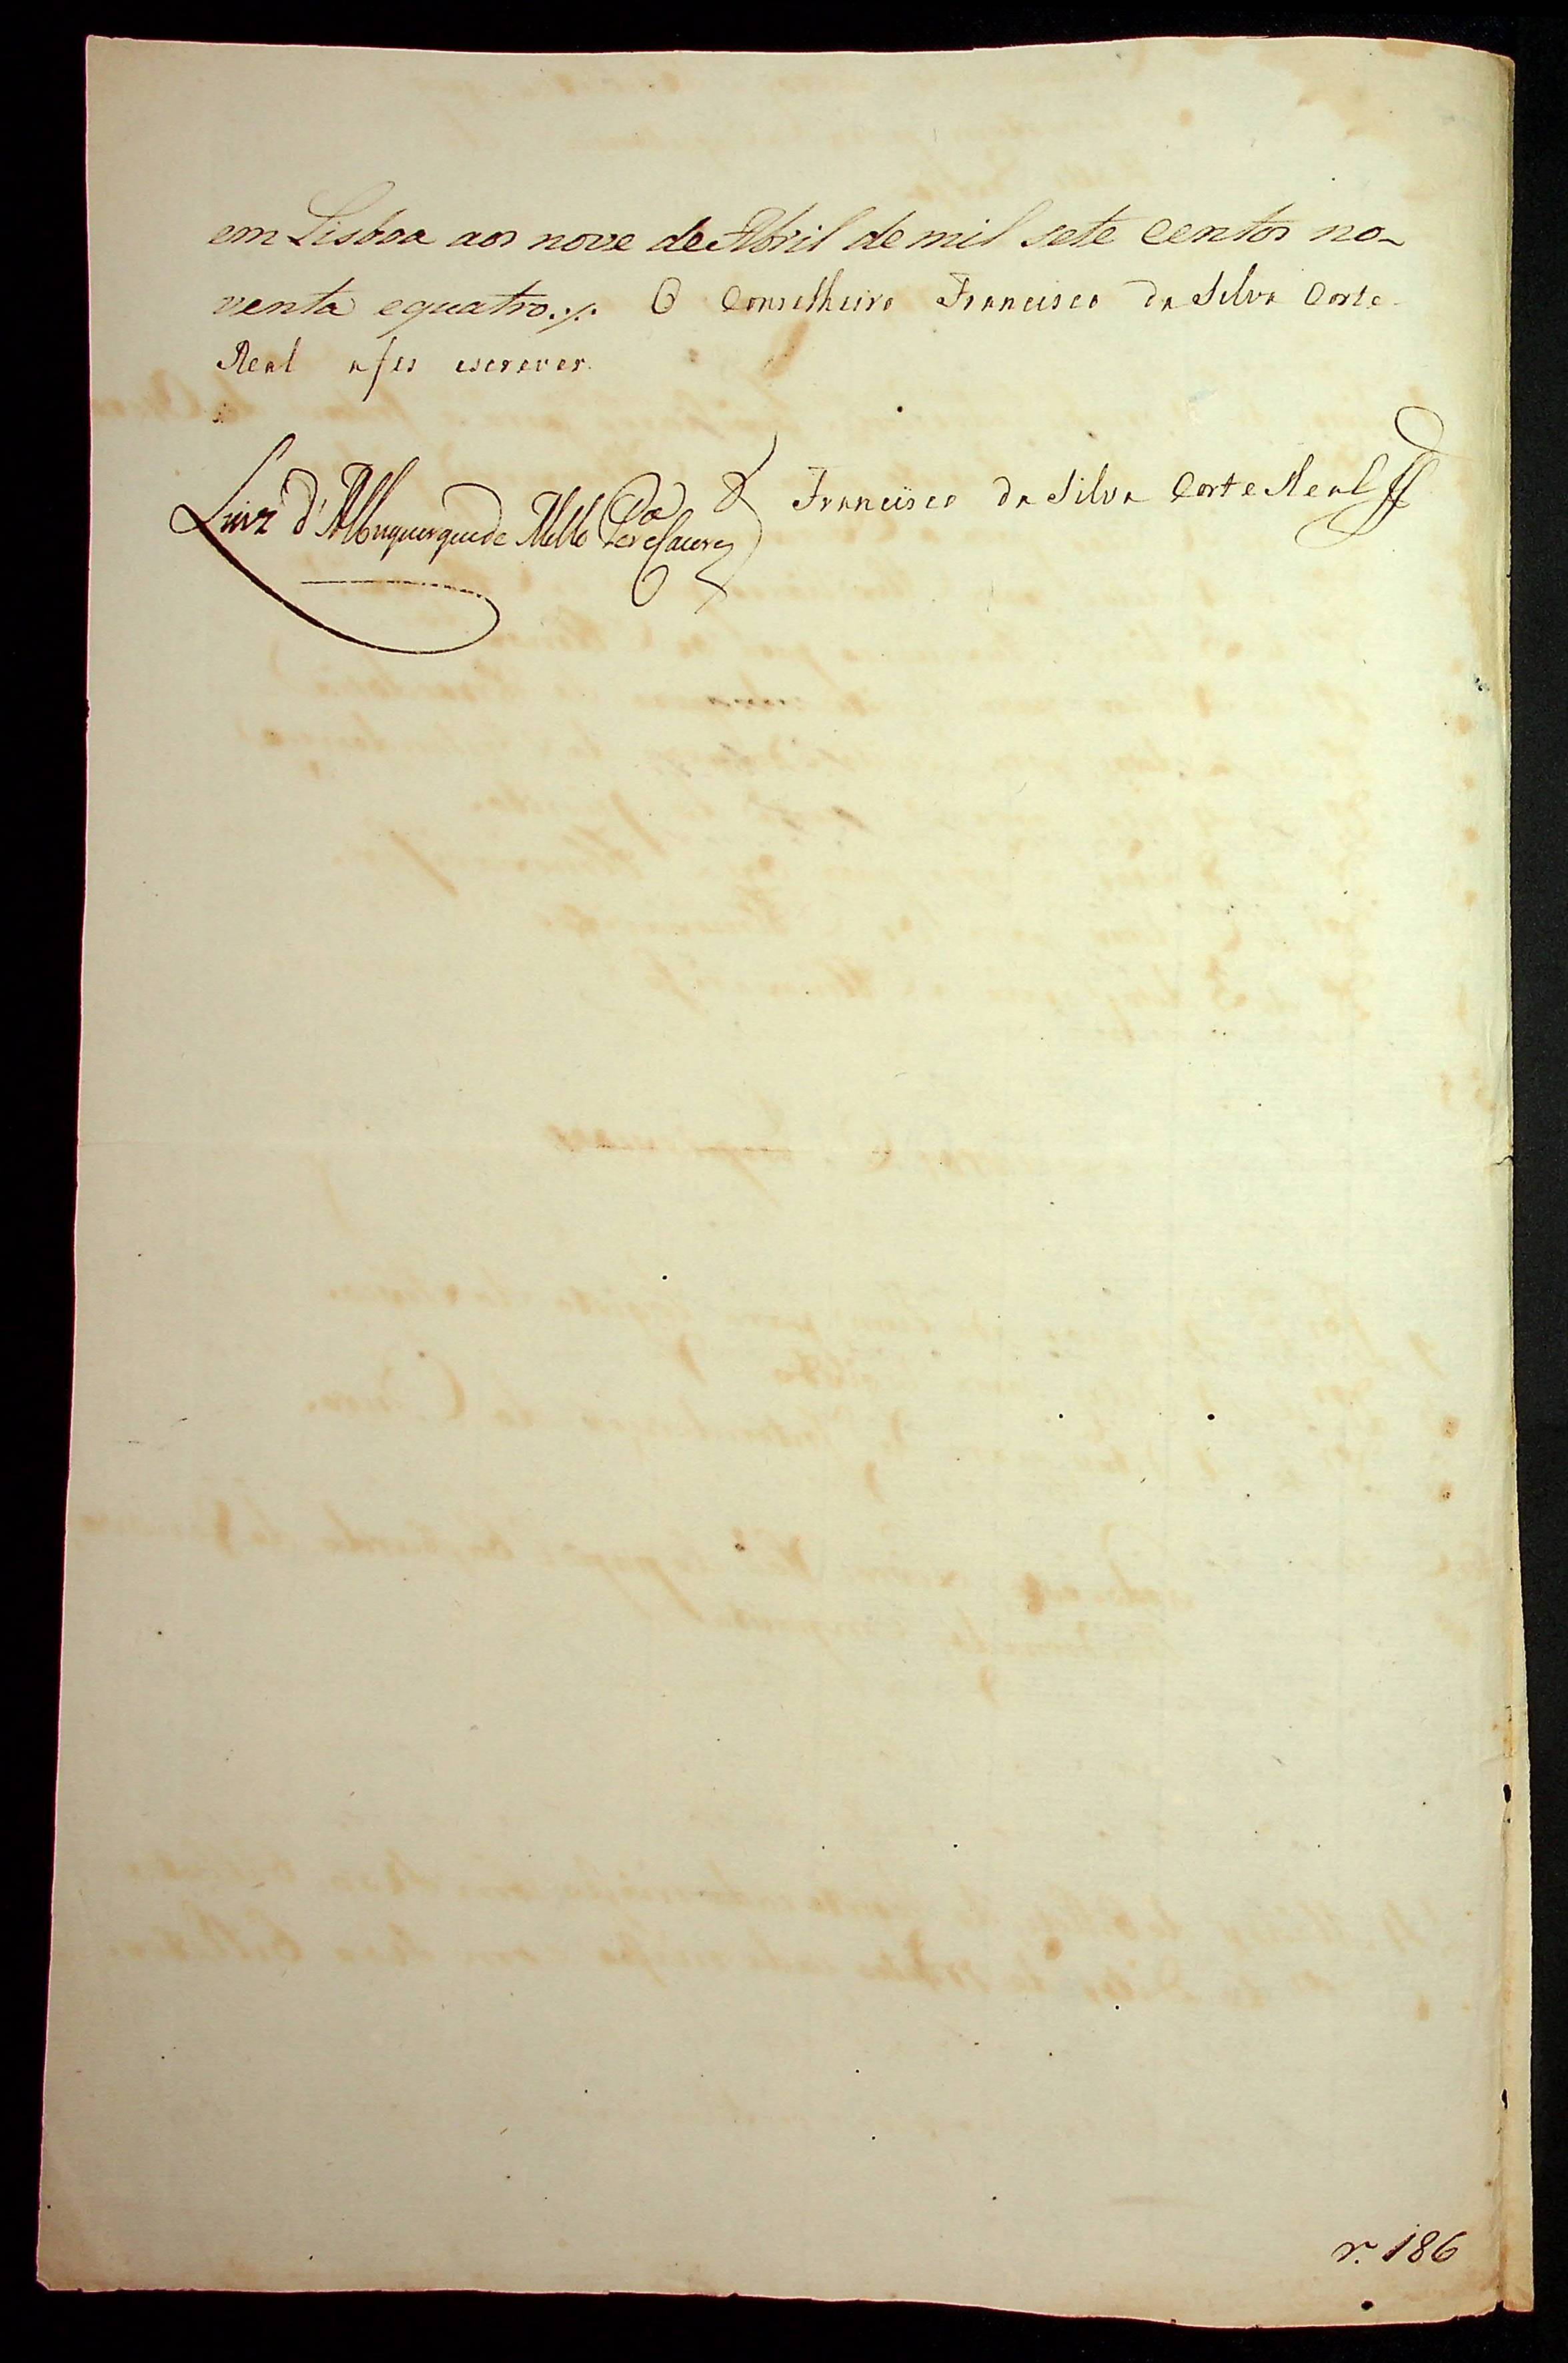 em Lisboa aos nove de Abril de mil sete centos no-
venta e quatro ./. O Conselheiro Francisco da Silva Corte
Real a fes escrever.
Luiz d'Albuquerque de Mello Per.ª e Caceres
Francisco da Silva Corte Real
r. 186